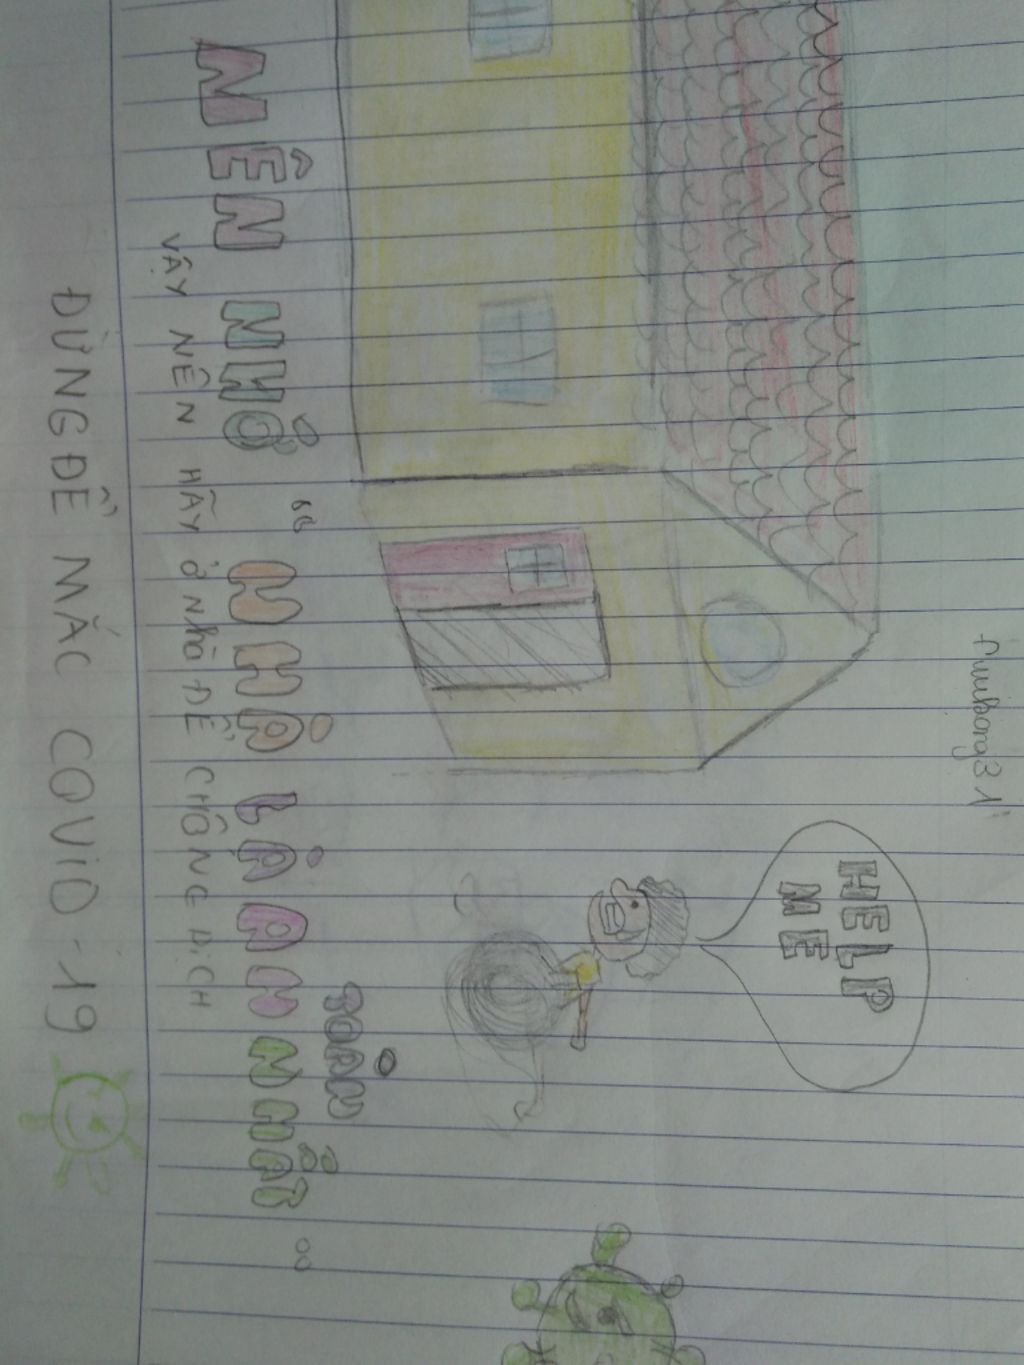 HELP
ME
TOÀN
NÊN NHỚ " NHÀ LÀ AN NHẤT "
VẬY NÊN HÃY Ở NHÀ ĐỂ CHỐNG DỊCH
ĐỪNG ĐỂ MẮC COVID-19